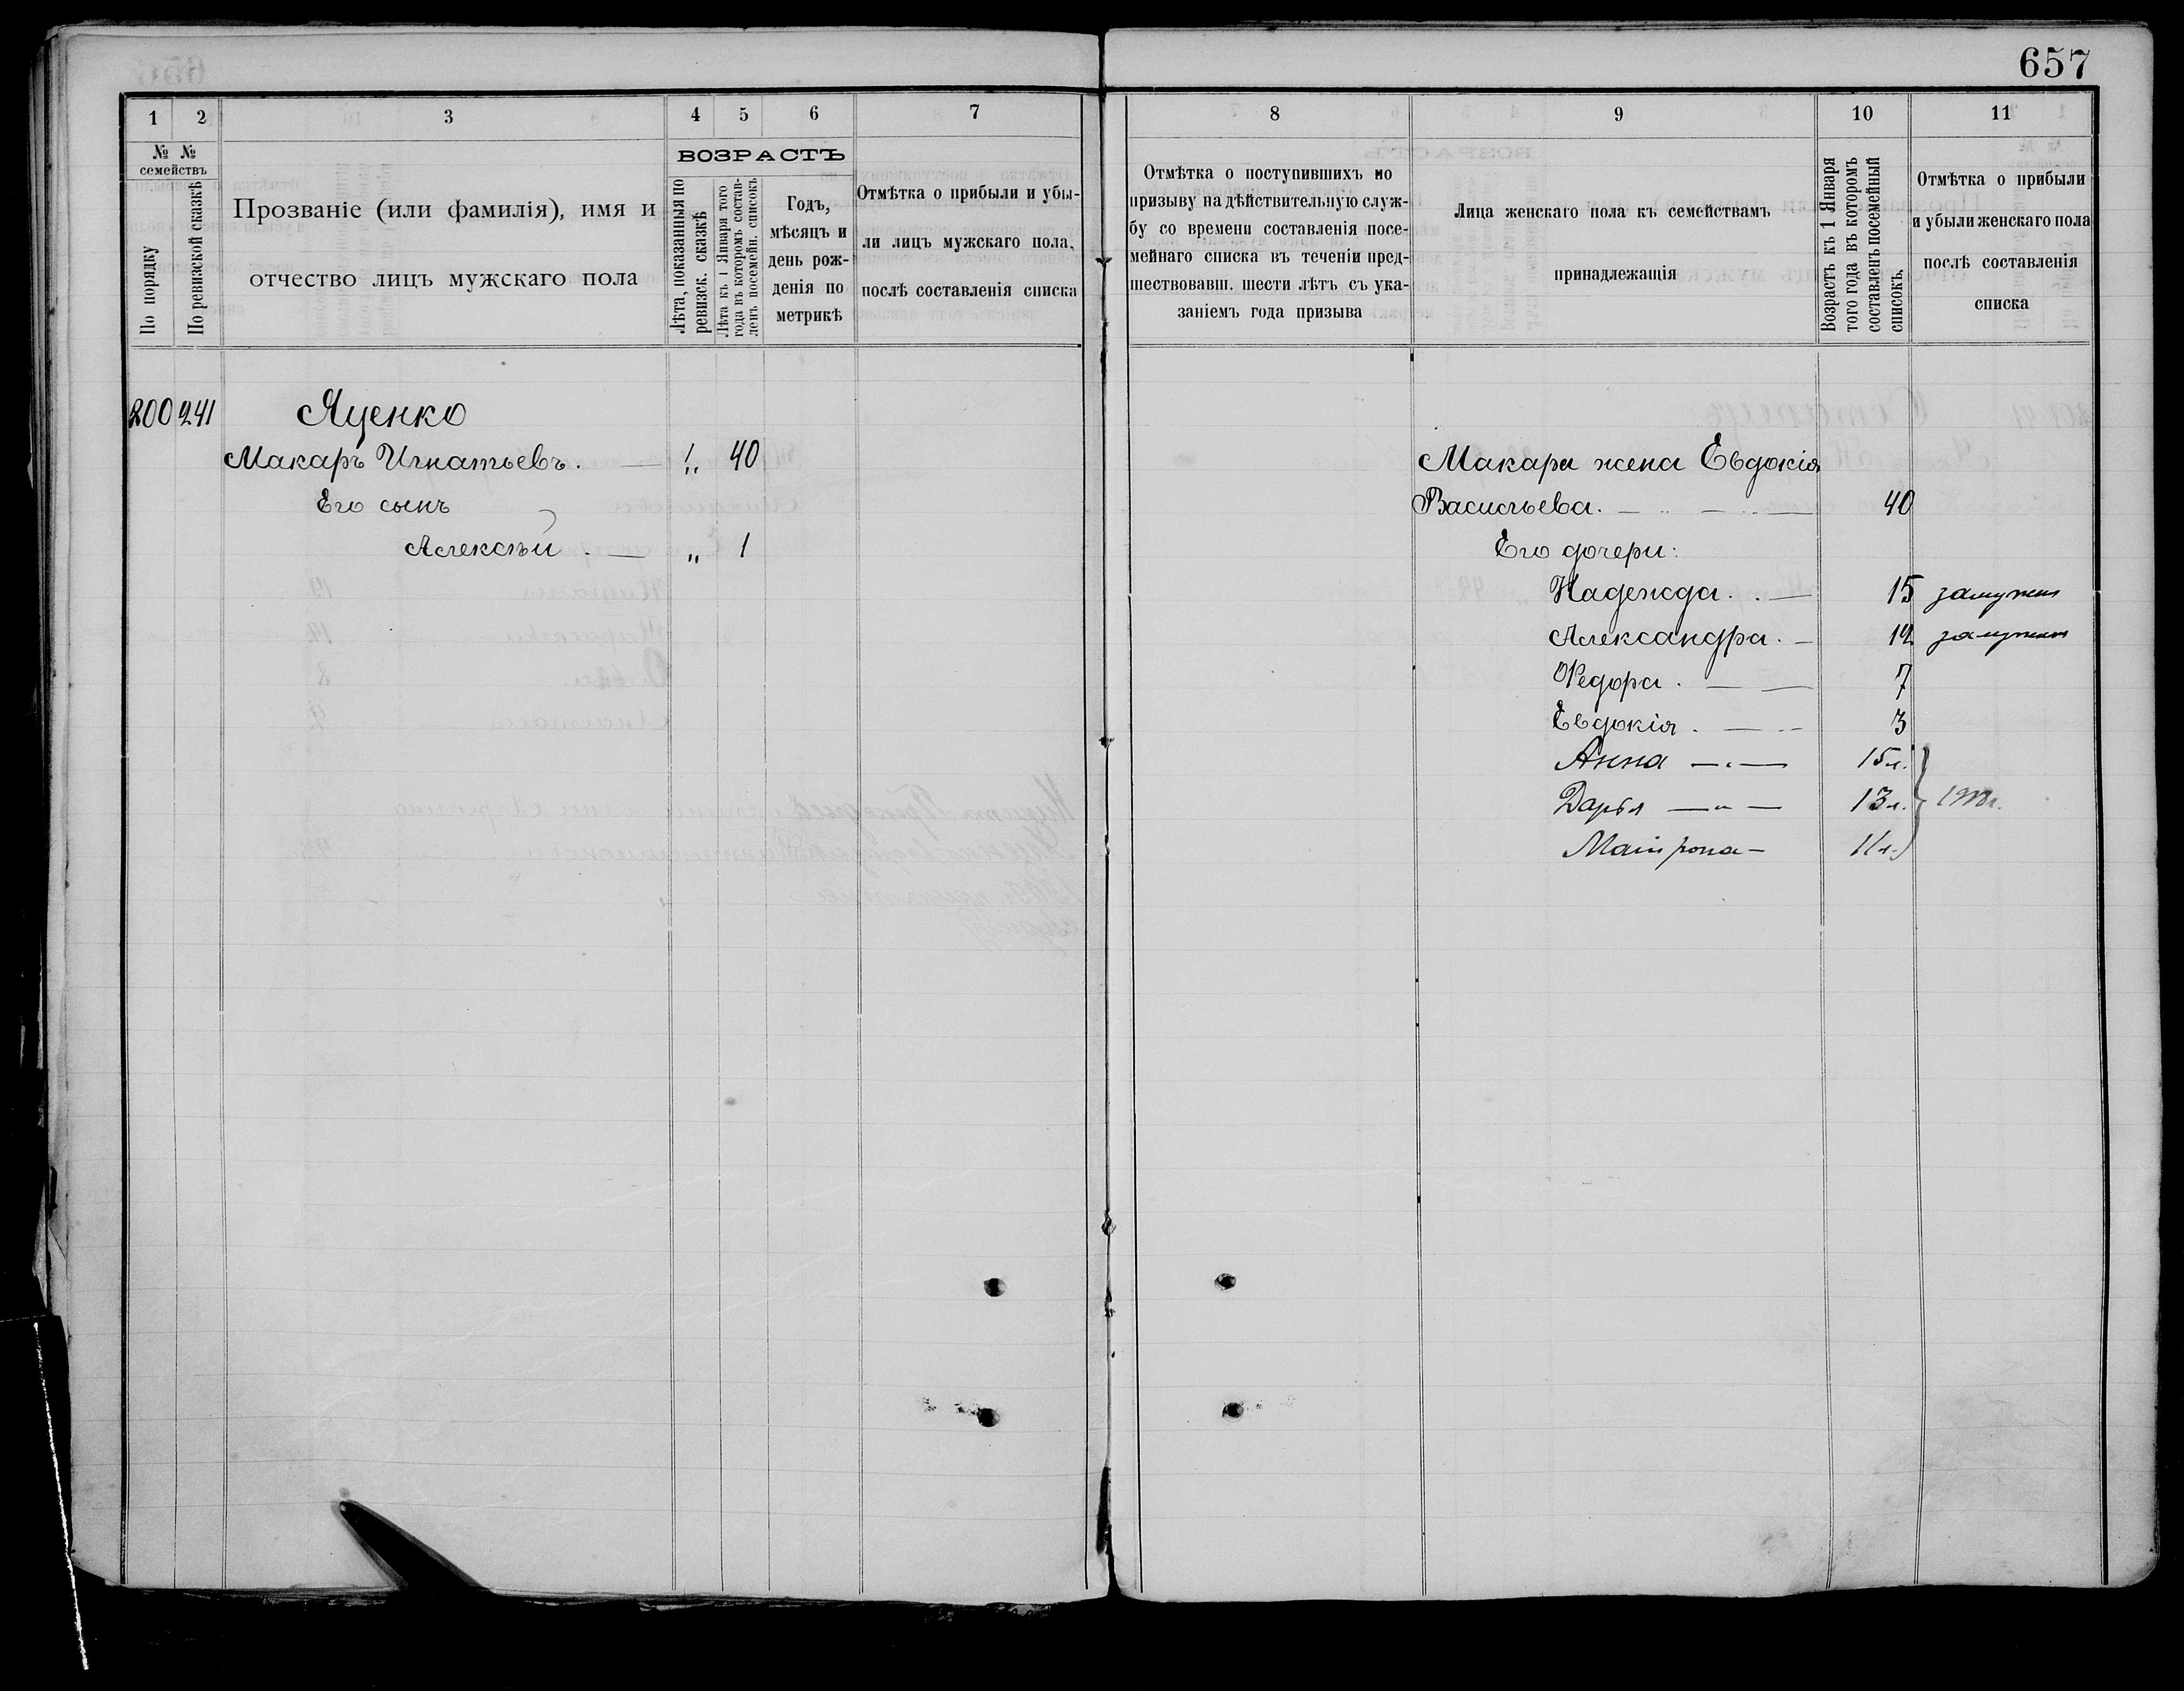 657
1 2 3 4 5 6 7
№ № семействъ
По порядку
По ревизской сказкѣ
Прозваніе (или фамилія), имя и
отчество лицъ мужскаго пола
ВОЗРАСТЪ
Лѣта, показанныя по
ревизск. сказкѣ
Лѣта къ 1 Января того
года въ которомъ состав-
ленъ посемейн. списокъ
Годъ,
мѣсяцъ и
день рож-
денія по
метрикѣ
Отмѣтка о прибыли и убы-
ли лицъ мужскаго пола,
послѣ составленія списка
200 241 Яценко
Макаръ Игнатьевъ. — 1 „ 40
Его сынъ
Алексѣй . — „ 1
8 9 10 11
Отмѣтка о поступившихъ по
призыву на дѣйствительную служ-
бу со времени составленія посе-
мейнаго списка въ теченіи пред-
шествовавш. шести лѣтъ съ ука-
заніемъ года призыва
Лица женскаго пола къ семействамъ
принадлежащія
Возрастъ къ 1 Января
того года въ которомъ
составленъ посемейный
списокъ.
Отмѣтка о прибыли
и убыли женскаго пола
послѣ составленія
списка
Макара жена Евдокія
Васильева. — 40
Его дочери:
Надежда. . — 15 замужем
Александра. — 12 замужем
Ѳедора . — — 7
Евдокія . — — 3
Анна — „ — 15 л.
Дарья — „ — 13 л.
Матрона — 11 л.